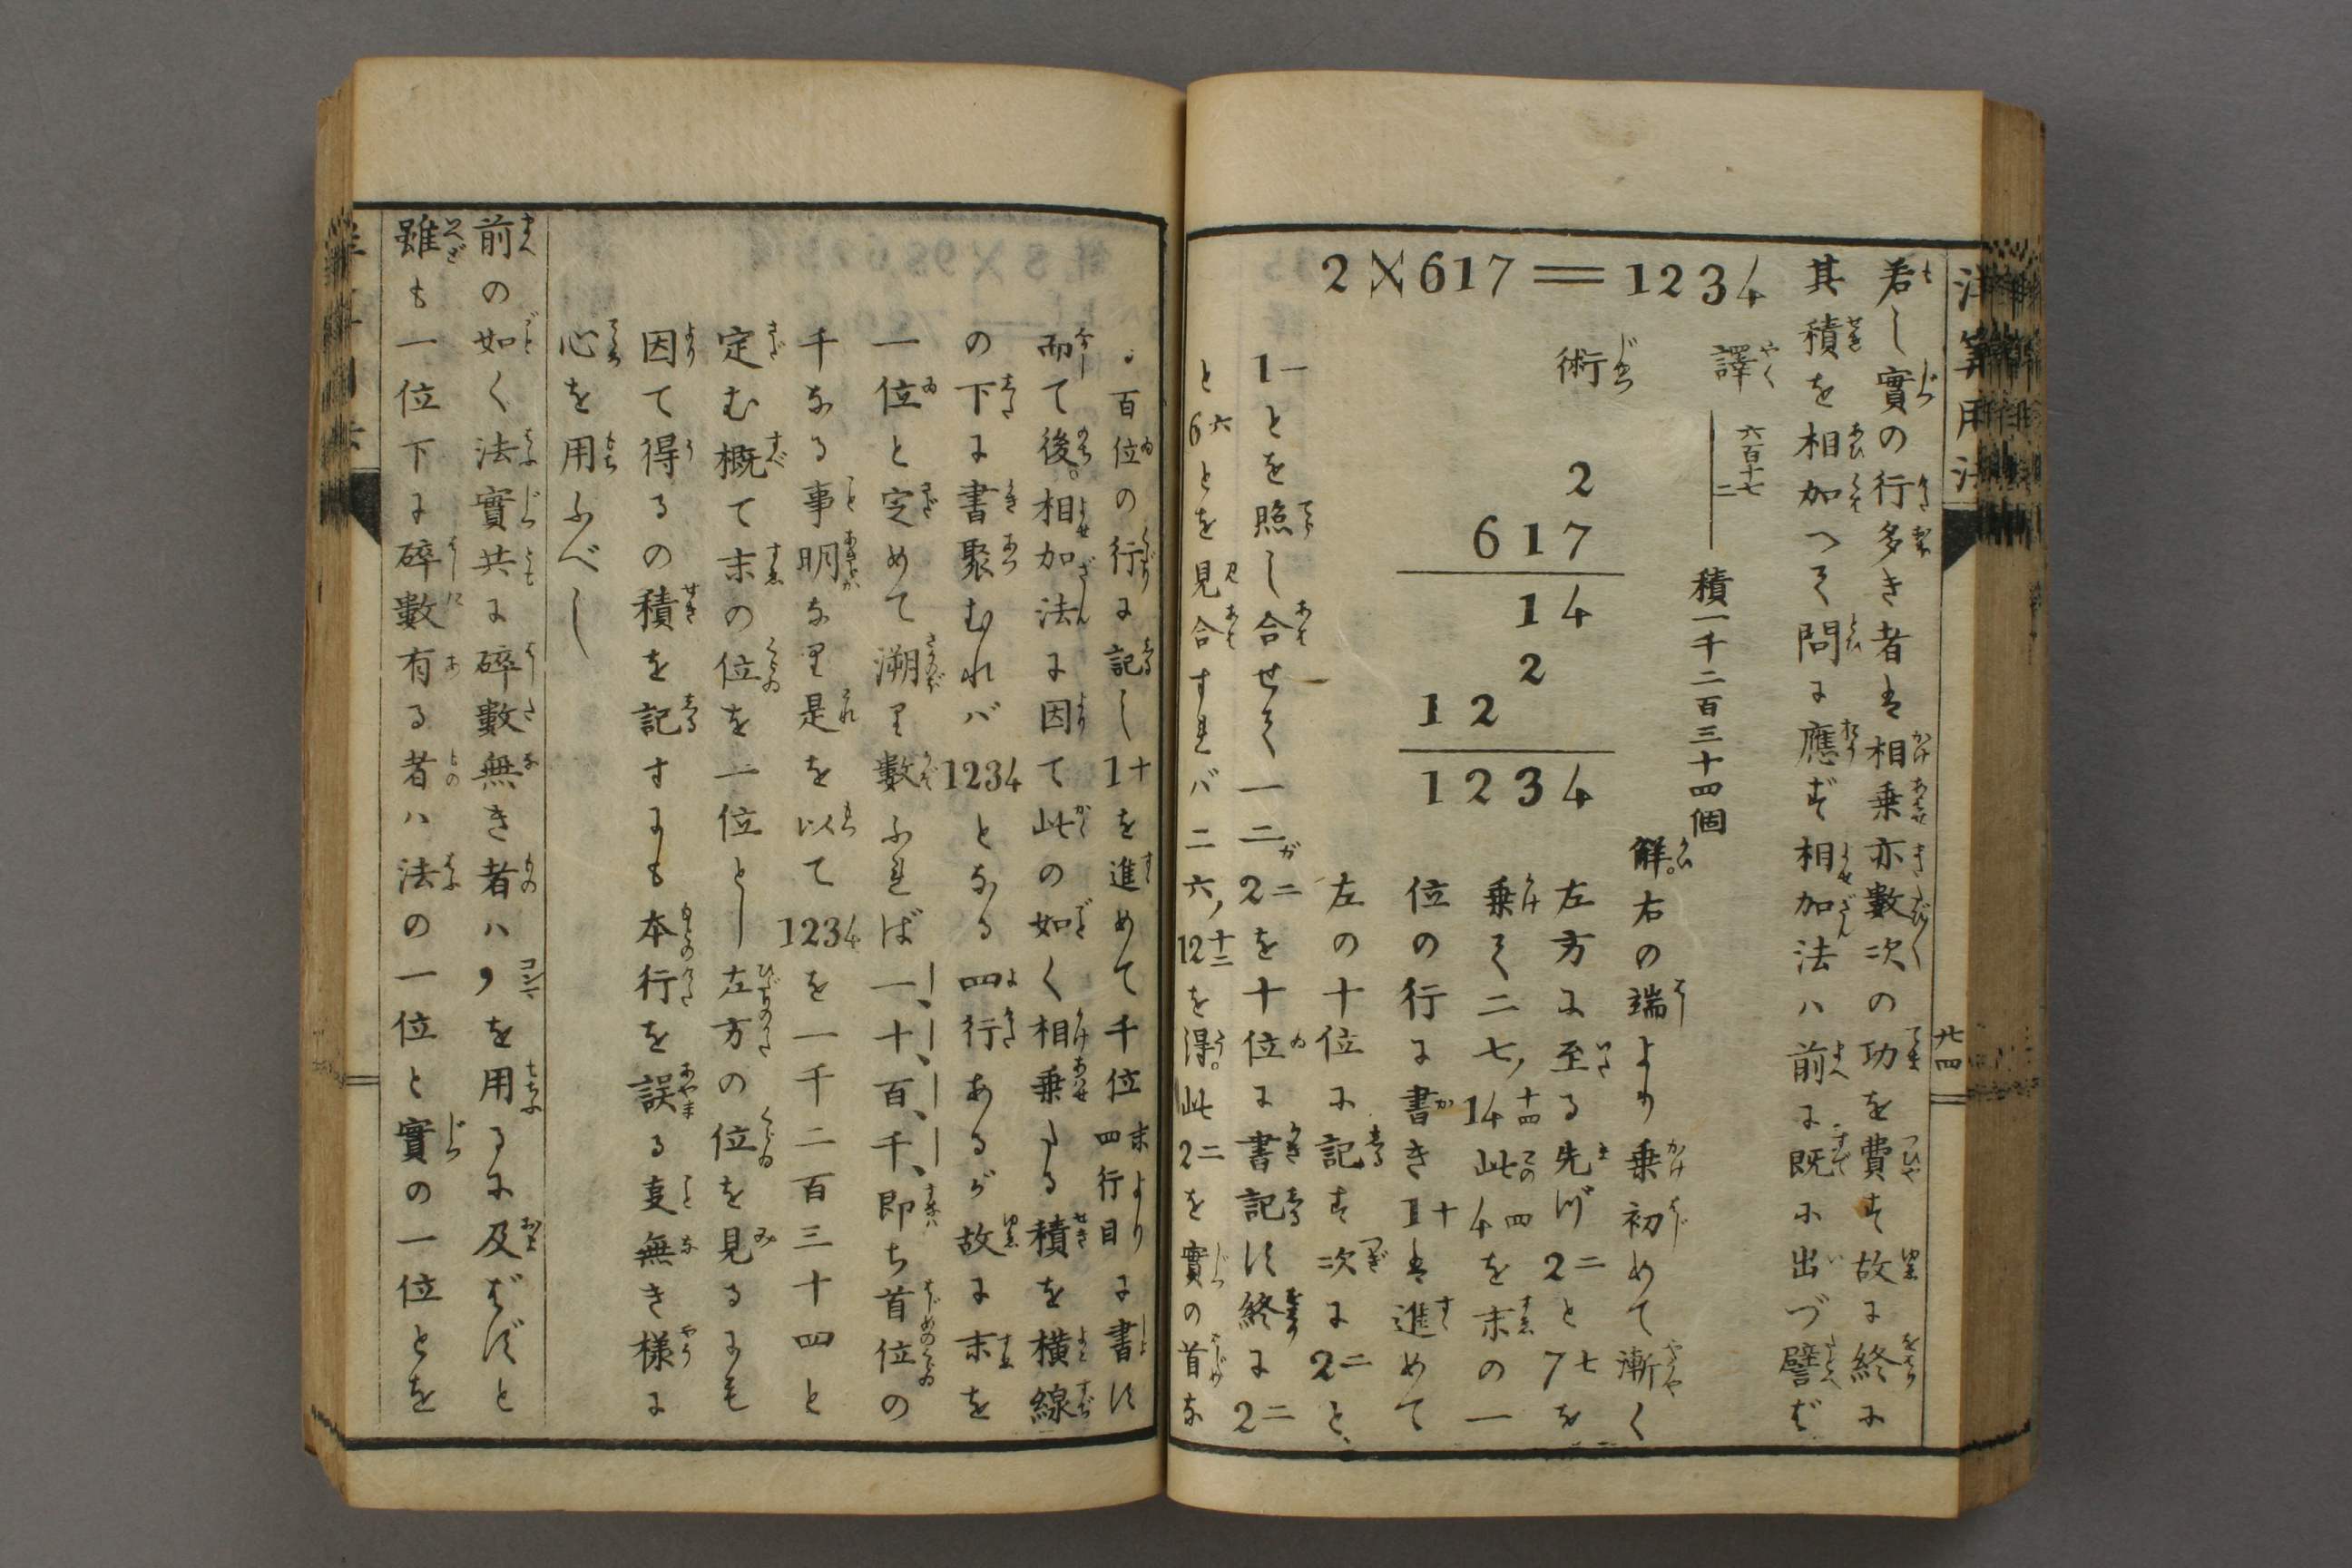 洋算用法
廿四
若し實の行多き者は相乗亦數次の功を費す故に終に
其積を相加へて問に應ず相加法ハ前に既に出づ譬ば
2×617＝1234
譯 六百十七 二 積一千二百三十四個
術
2
617
14
2
12
1234
解。右の端より乗初めて漸く
左方に至る先づ2二と7七を
乗て二七,14十四此4四を末の一
位の行に書き1十は進めて
左の十位に記す次に2二と、
1一とを照し合せて一二ガ2二を十位に書記す終に2二
と6六とを見合すればバ二六,12十二を得。此2二を實の首な
百位の行に記し1十を進めて千位末より四行目に書す
而て後。相加法に因て此の如く相乗たる積を横線
の下に書聚むれバ1234となる四行あるが故に末を
一位と定めて溯り數ふれば一、十、百、千、即ち首位の
千なる事明なり是を以て1234を一千二百三十四と
定む概て末の位を一位とし左方の位を見るにも
因て得るの積を記すにも本行を誤る支無き様に
心を用ふべし
前の如く法實共に碎數無き者ハ，を用るに及ばずと
雖も一位下に碎數有る者ハ法の一位と實の一位とを